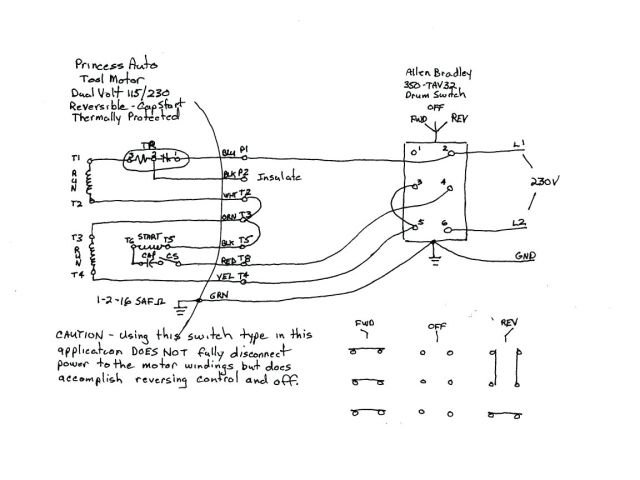 Princess Auto
Tool Motor
Dual Volt 115/230
Reversible - Cap Start
Thermally Protected
Allen Bradley
350-TAV32
Drum Switch
OFF
FWD REV
TPR
T1 3 2 1 BLU P1
1 2 L1
BLK P2 Insulate
RUN
T2 WHT T2
3 4
230V
ORN T3
T3 T6 START T5 BLK T5
5 6 L2
RUN CAP CS RED T8
T4 YEL T4
GND
1-2-16 SAF GRN
CAUTION - Using this switch type in this
application DOES NOT fully disconnect
power to the motor windings but does
accomplish reversing control and off.
FWD OFF REV